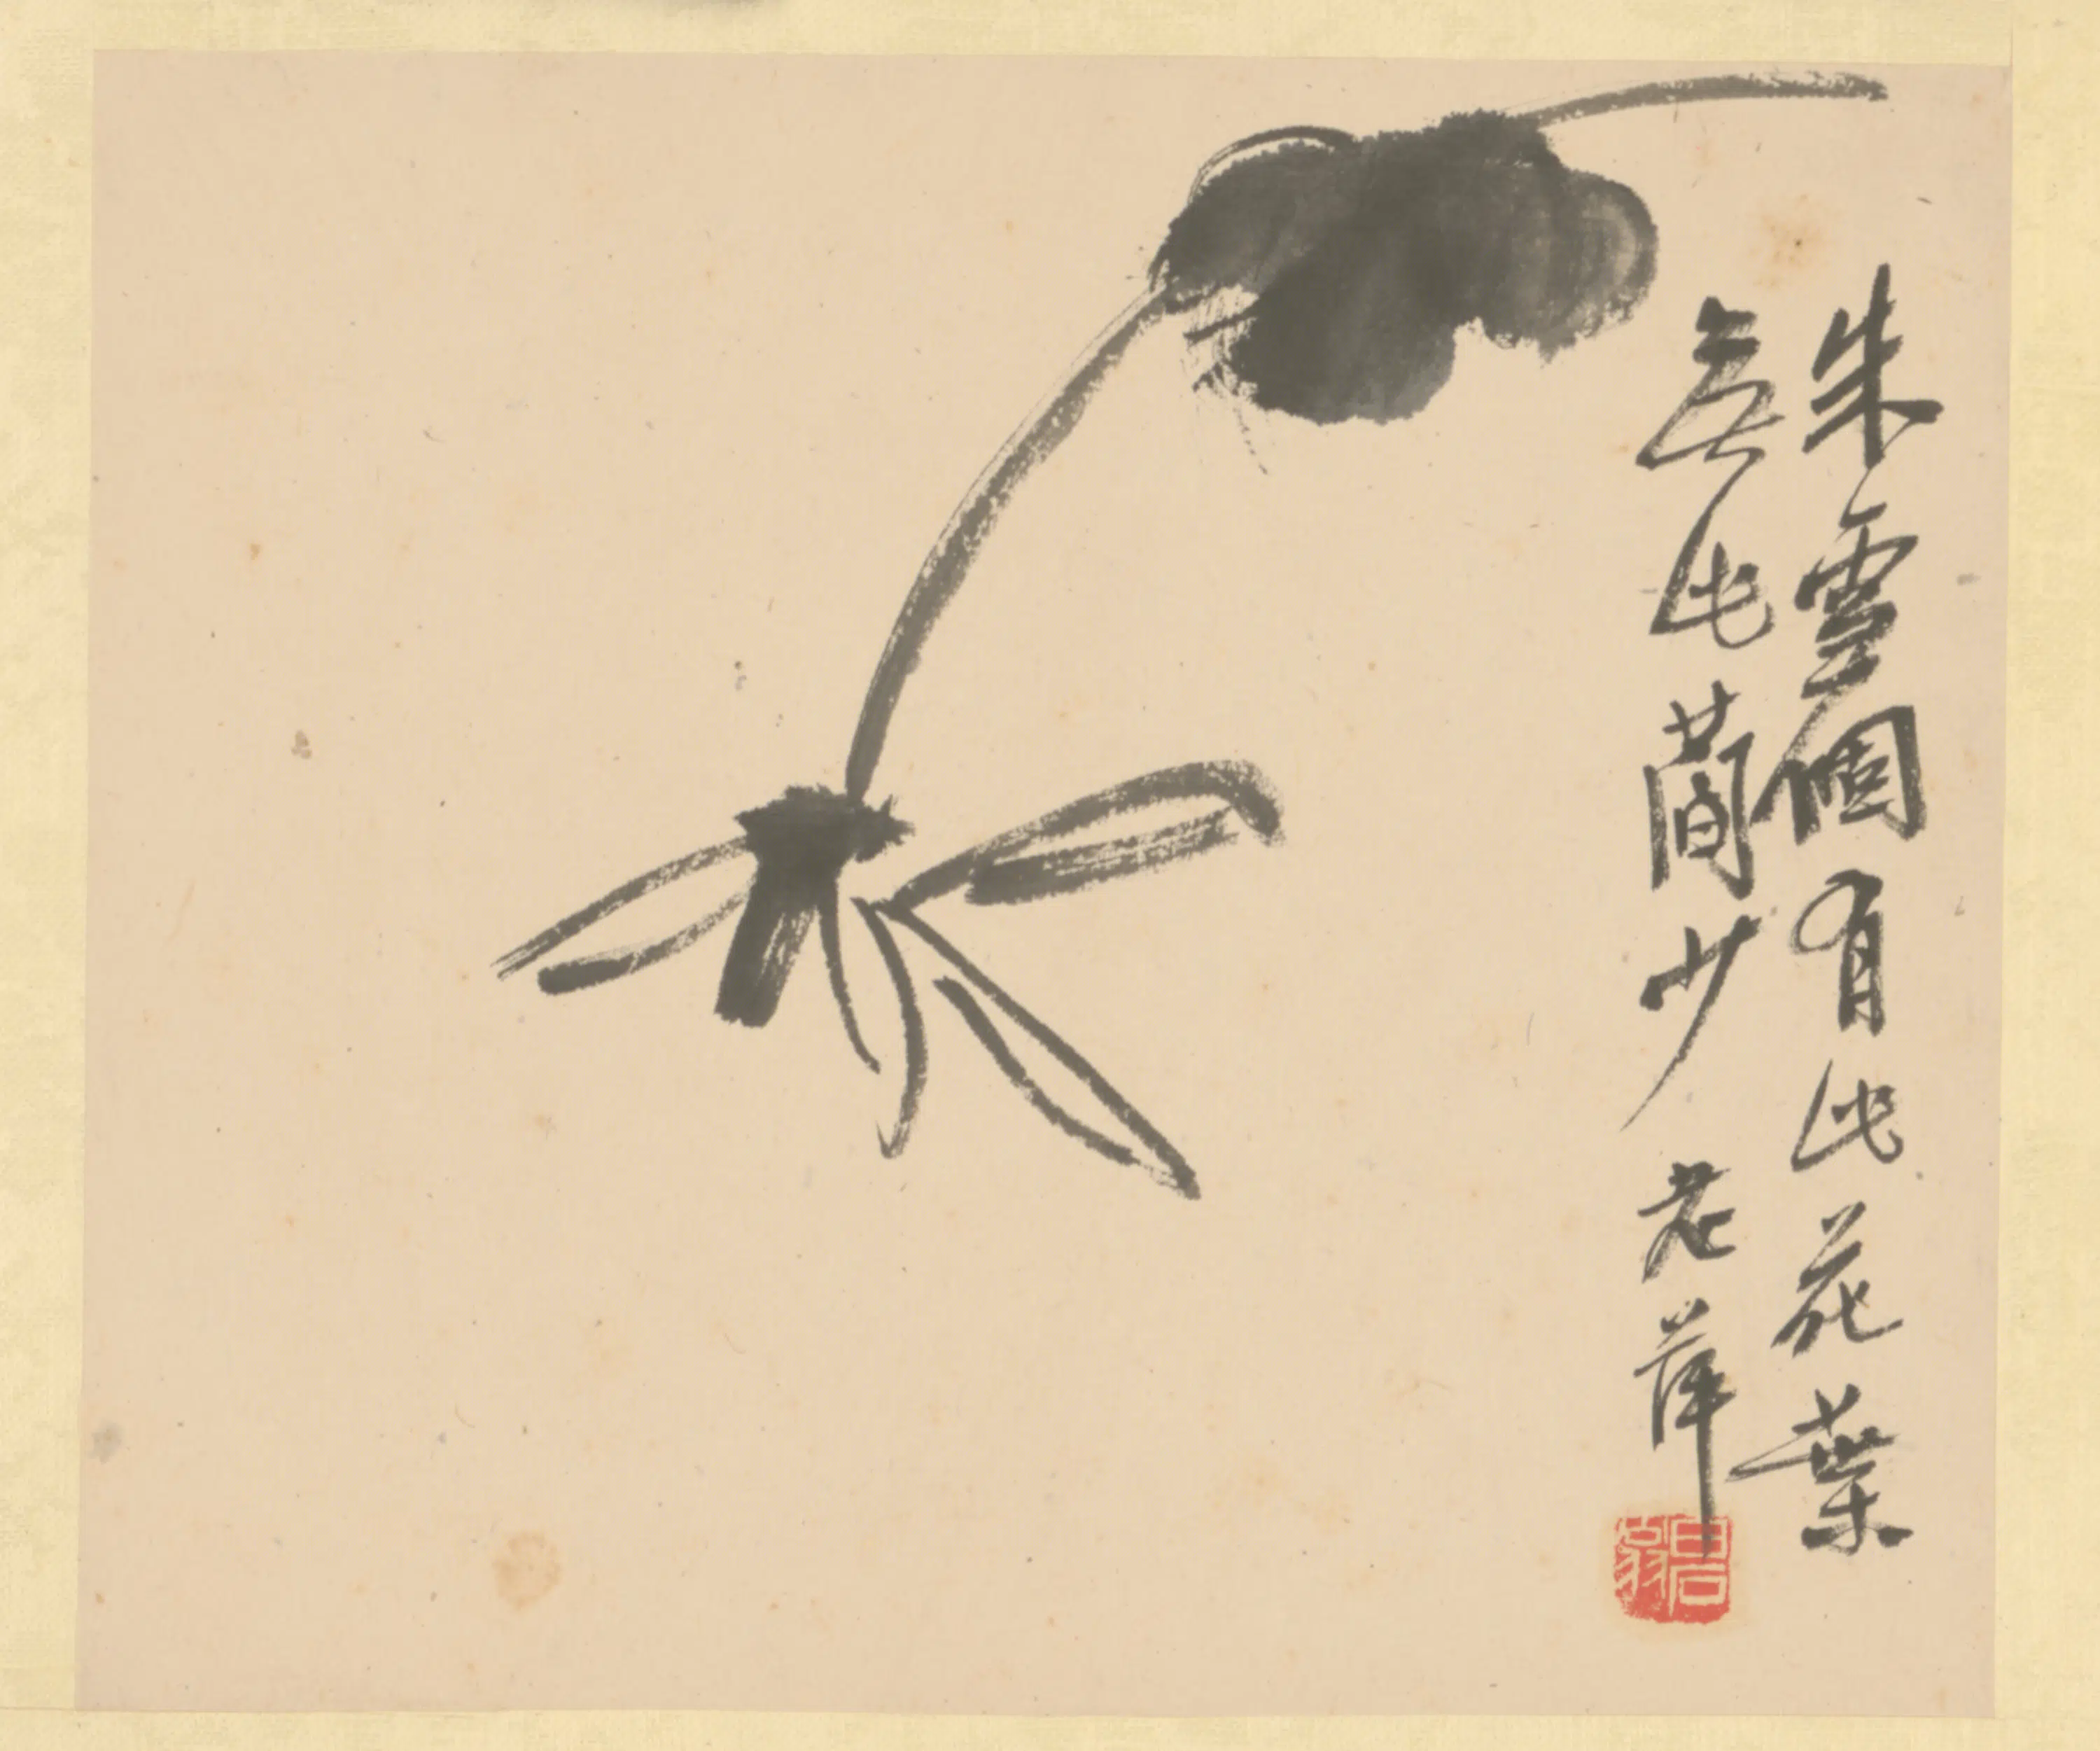 朱雪個有此花葉
無此簡少 老萍
白石翁